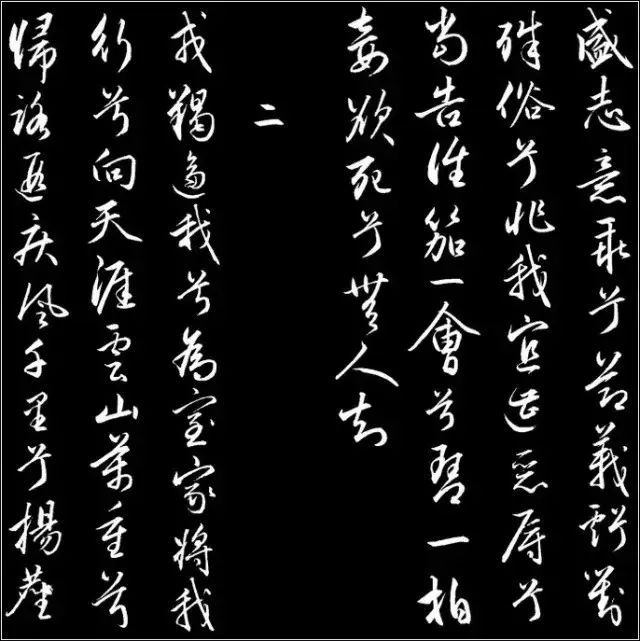 盛志意乖兮節義虧對
殊俗兮非我宜遭惡辱兮
當告誰笳一會兮琴一拍
妾欲死兮無人知
二
戎羯逼我兮為室家將我
行兮向天涯雲山萬重兮
歸路遐疾風千里兮揚塵